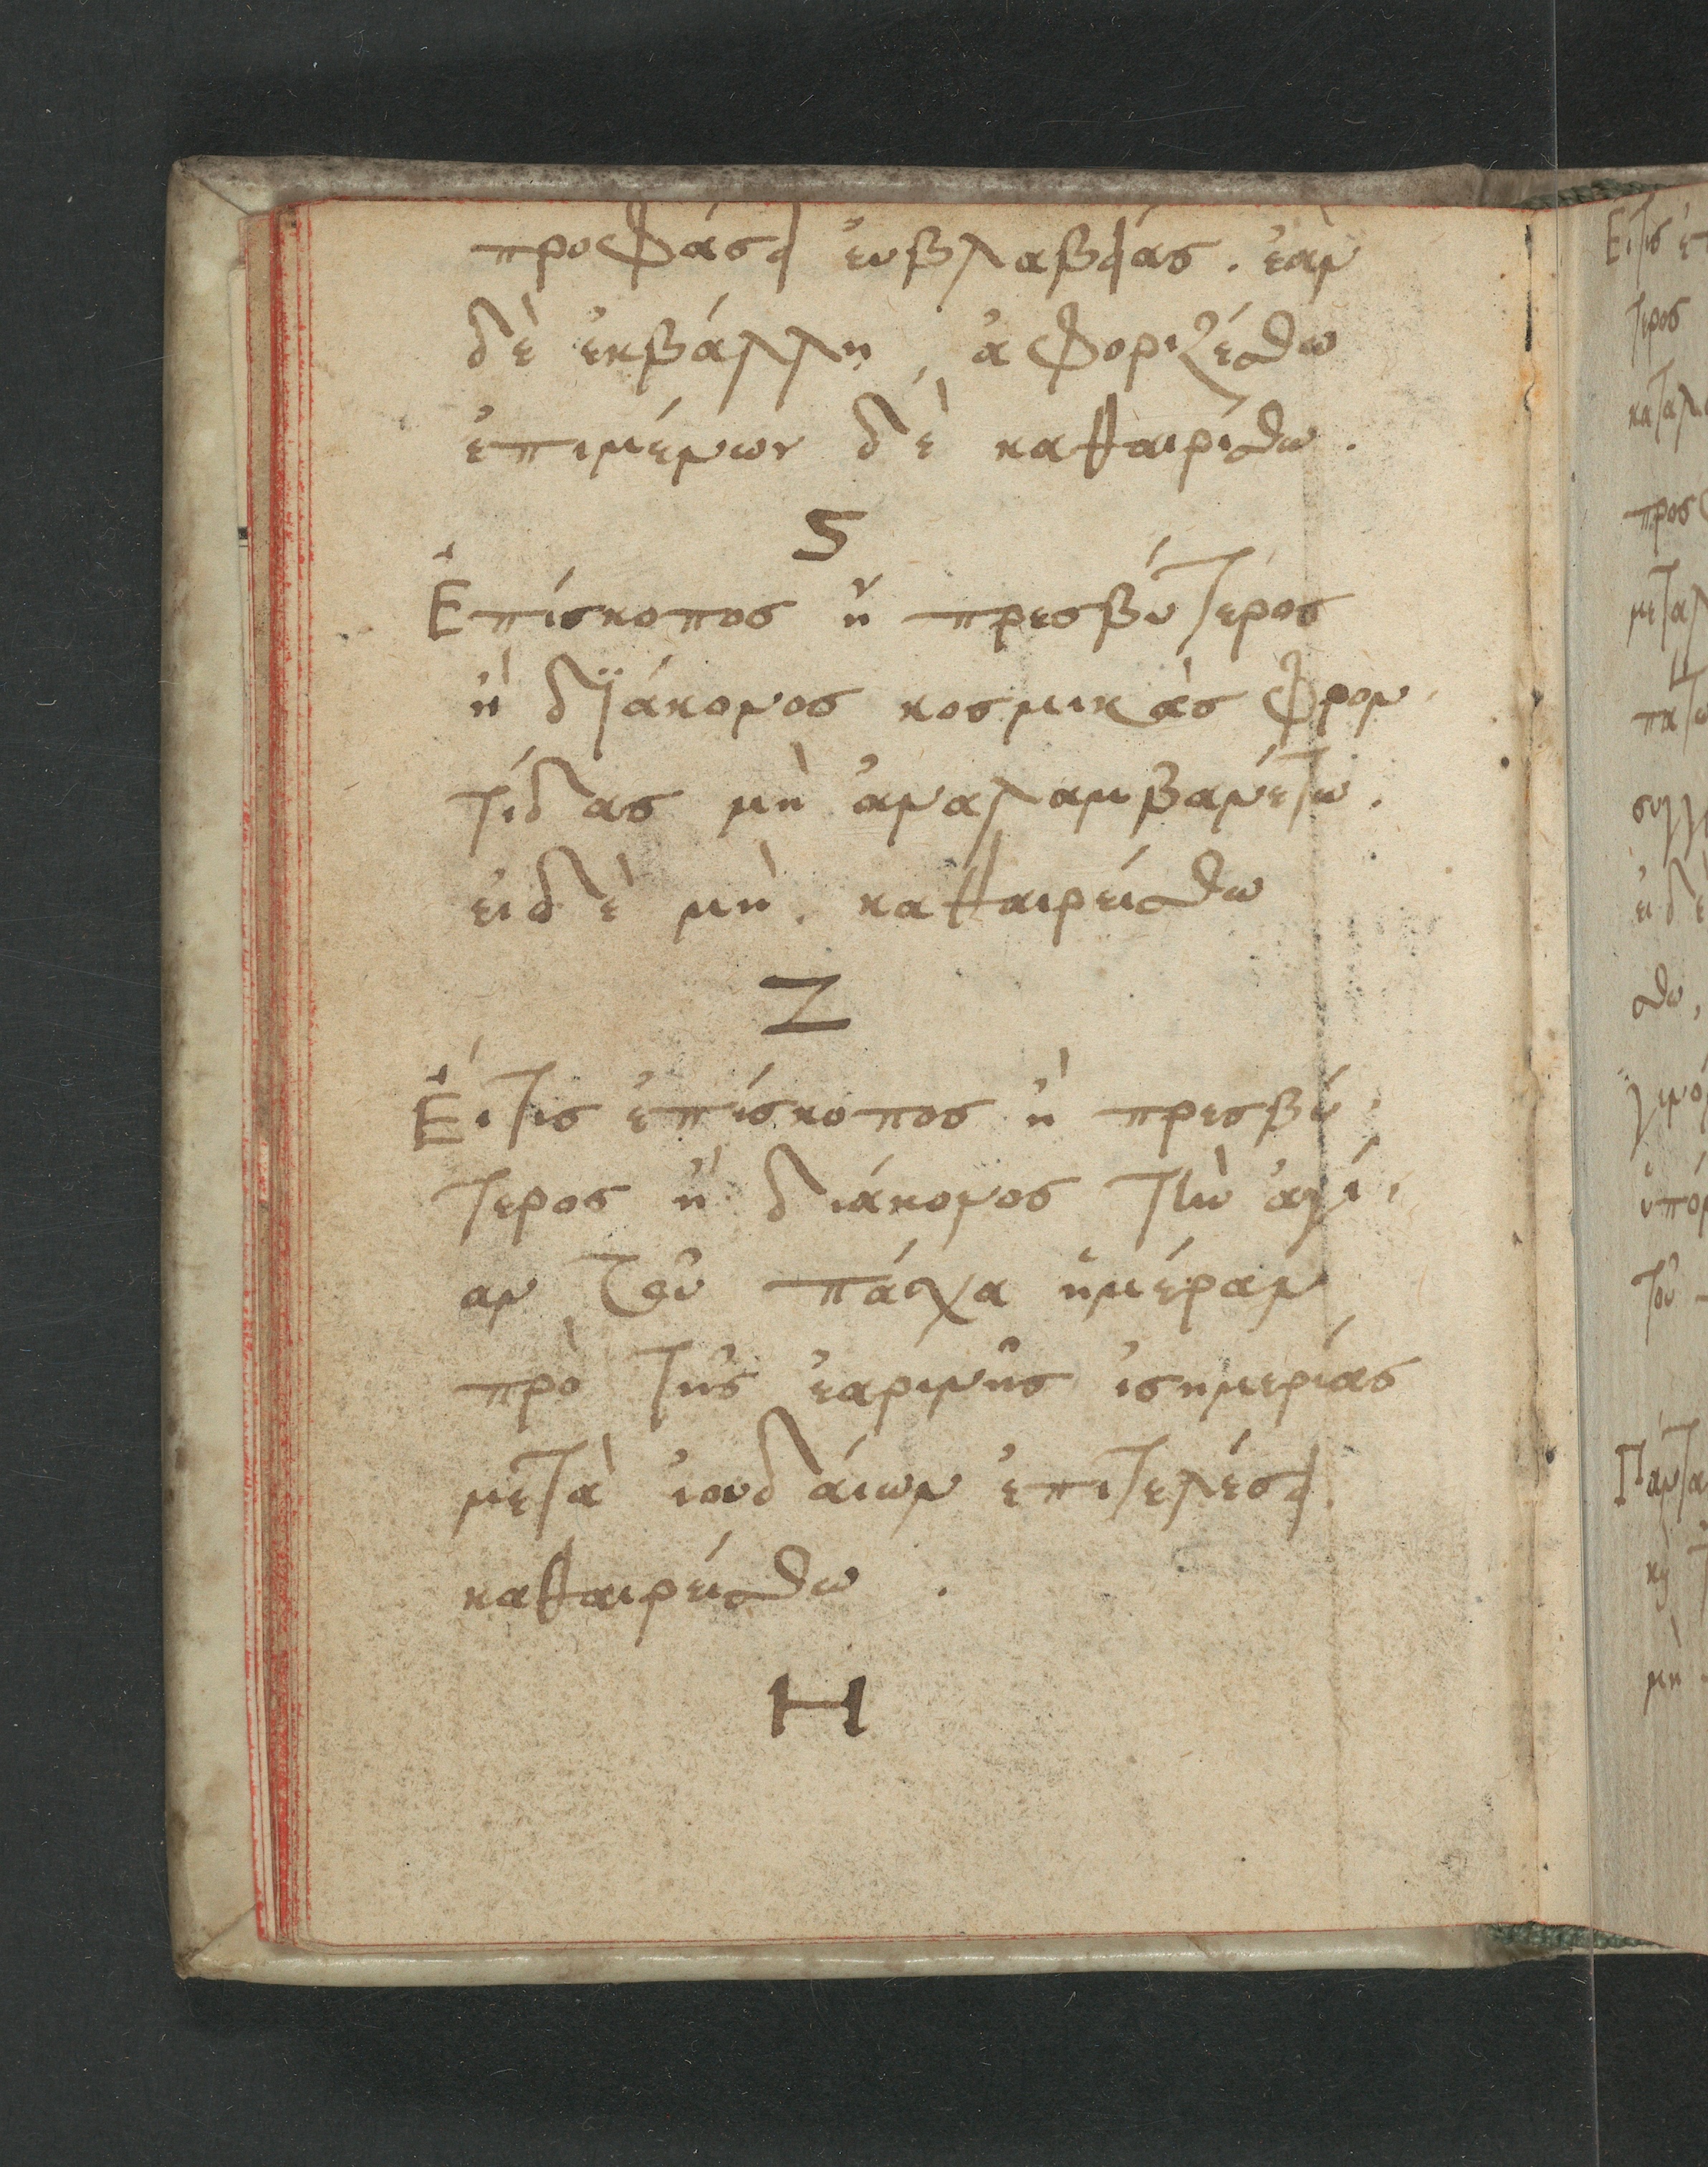 προφάσει ἐυβλαβείας. ἐὰν
δὲ ἐκβάλλῃ, ἀφοριζέσθω
ἐπιμένων δὲ καθαιρίσθω.
Ϛ
Ἐπίσκοπος ἢ πρεσβύτερος
ἢ διάκονος κοσμικὰς φρον
τίδας μὴ ἀναλαμβανέτω.
ἐιδὲ μὴ. καθαιρείσθω
Ζ
Ἐίτις ἐπίσκοπος ἢ πρεσβύ
τερος ἢ διάκονος τὴν ἁγί
αν τοῦ πάσχα ἡμέραν
πρὸ τῆς ἐαρινῆς ἰσημερίας
μετὰ ἰουδάιων ἐπιτελέσει.
καθαιρείσθω.
Η
Ἐίτις
τερος
μὴ